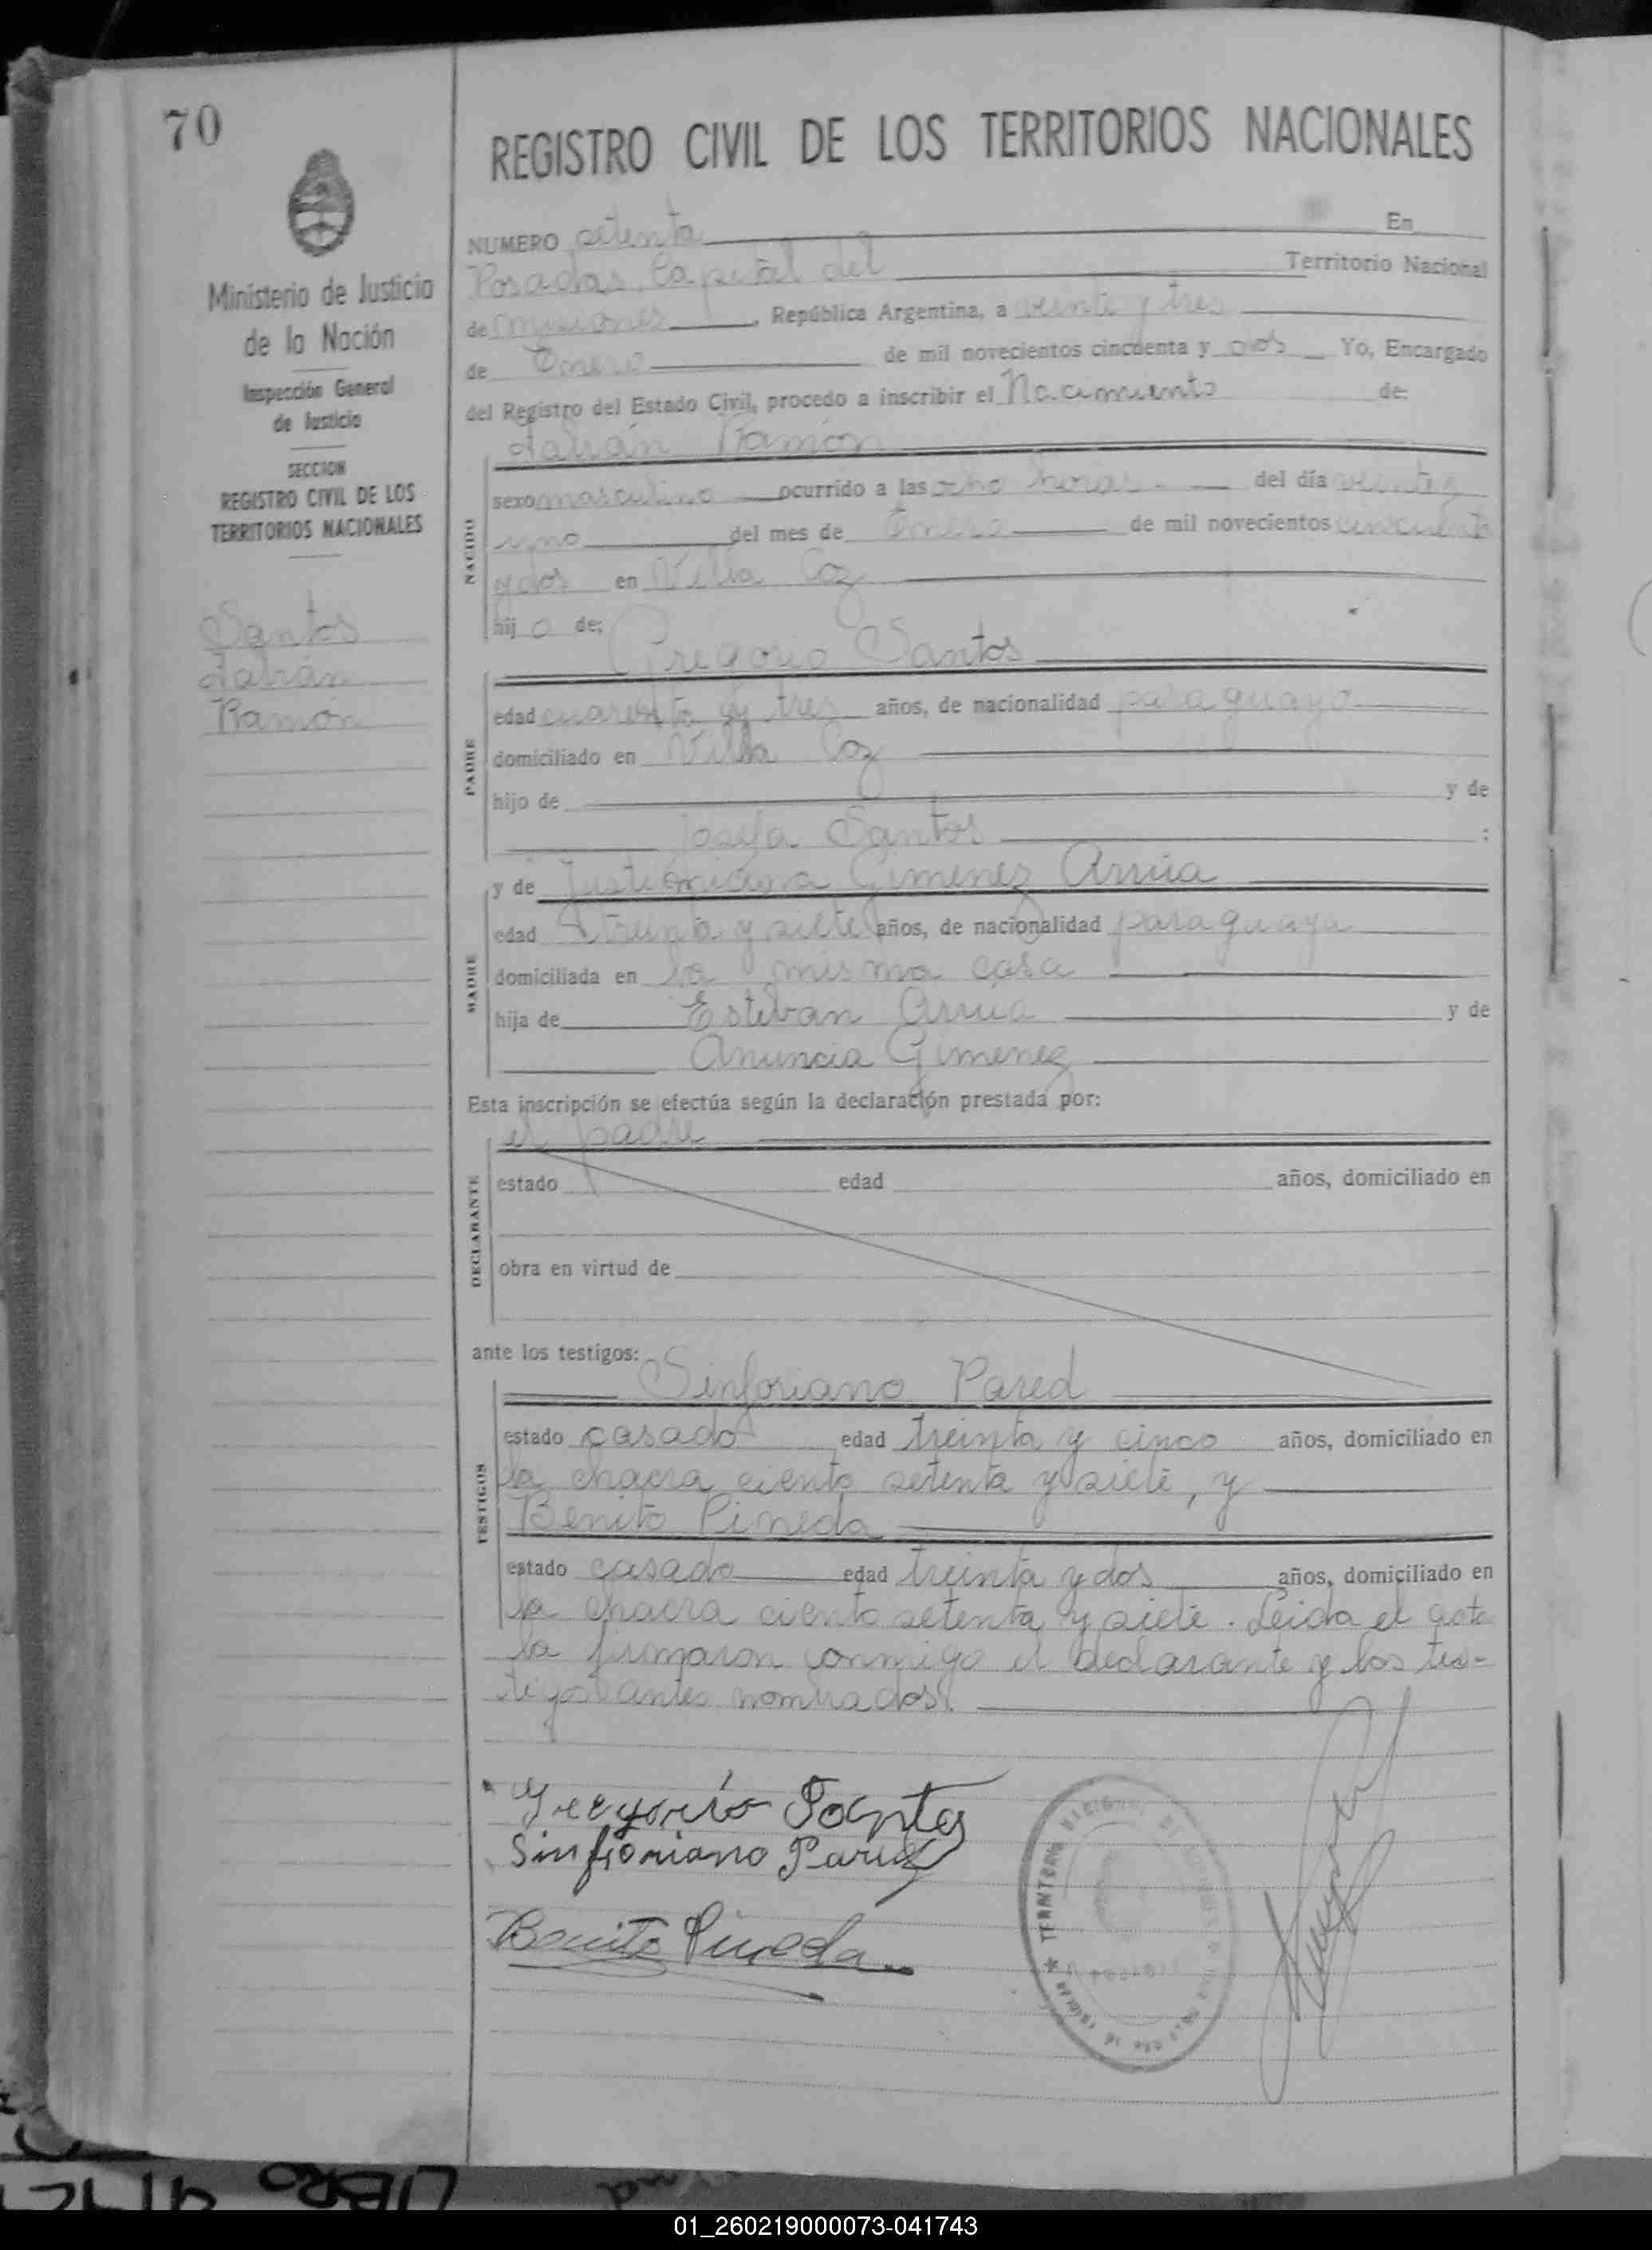 70
Ministerio de Justicia
de la Nación
Inspección General
de Justicia
SECCION
REGISTRO CIVIL DE LOS
TERRITORIOS NACIONALES
Santos
Ramón
REGISTRO CIVIL DE LOS TERRITORIOS NACIONALES
NUMERO setenta En
Posadas, Capital del Territorio Nacional
de misiones, República Argentina, a veinte y tres
de Enero de mil novecientos cincuenta y dos Yo, Encargado
del Registro del Estado Civil, procedo a inscribir el Nacimiento de:
Ramón
NACIDO
sexo masculino ocurrido a las ocho horas. del día veinte y
uno del mes de Enero de mil novecientos cincuenta
y dos en Villa Coz
hijo de:
Gregorio Santos
PADRE
edad cuarenta y tres años, de nacionalidad paraguayo
domiciliado en Villa Coz
hijo de y de
Josefa Santos :
MADRE
y de Justiniana Gimenez Arrúa
edad treinta y siete años, de nacionalidad paraguaya
domiciliada en la misma casa
hija de Estevan Arrua y de
Anuncia Gimenez
Esta inscripción se efectúa según la declaración prestada por:
el padre
DECLARANTE
estado edad años, domiciliado en
obra en virtud de
ante los testigos:
Sinforiano Pared
TESTIGOS
estado casado edad treinta y cinco años, domiciliado en
la chacra ciento setenta y siete, y
Benito Pineda
estado casado edad treinta y dos años, domiciliado en
la chacra ciento setenta y siete. Leida el acta
la firmaron conmigo el declarante y los tes-
tigos antes nombrados.
Gregorio Santos
Sinforiano Pared
Benito Pineda
LIBRO
01_260219000073-041743